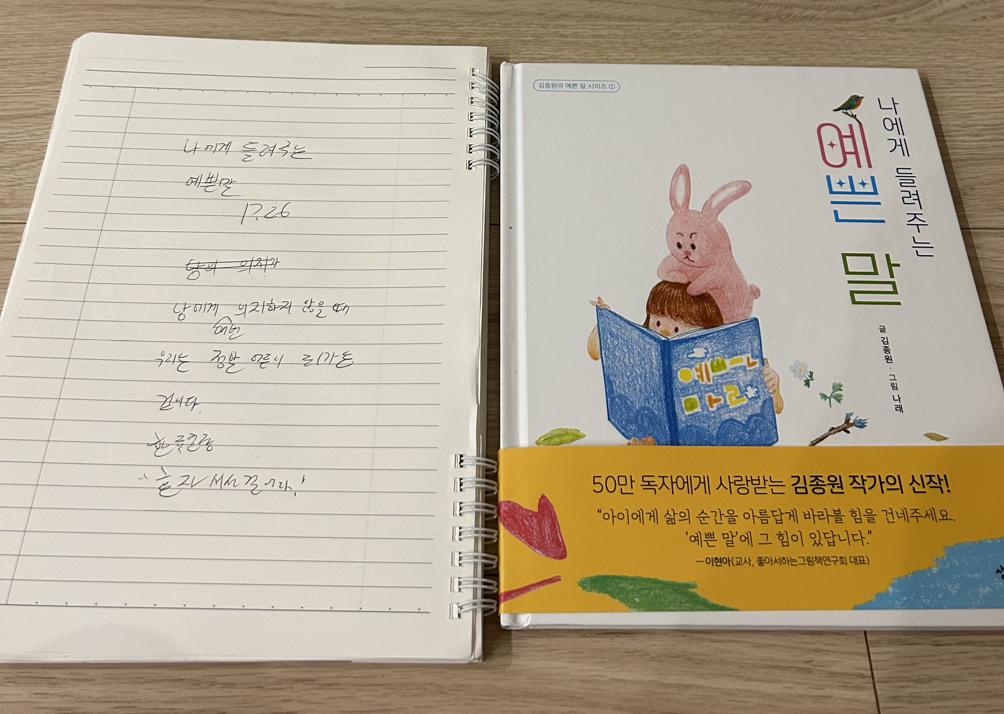 나에게 들려주는
예쁜말
P.26
남에게 의지하지 않을 때
우리는 정말 어른이 되가는
겁니다.
김종원의 예쁜 말 시리즈 ①
나에게 들려주는
예쁜 말
글 김종원 · 그림 나래
예쁘ㅏㄴ
마ㄹ
50만 독자에게 사랑받는 김종원 작가의 신작!
“아이에게 삶의 순간을 아름답게 바라볼 힘을 건네주세요.
‘예쁜 말’에 그 힘이 있답니다.”
—이현아(교사, 좋아서하는그림책연구회 대표)